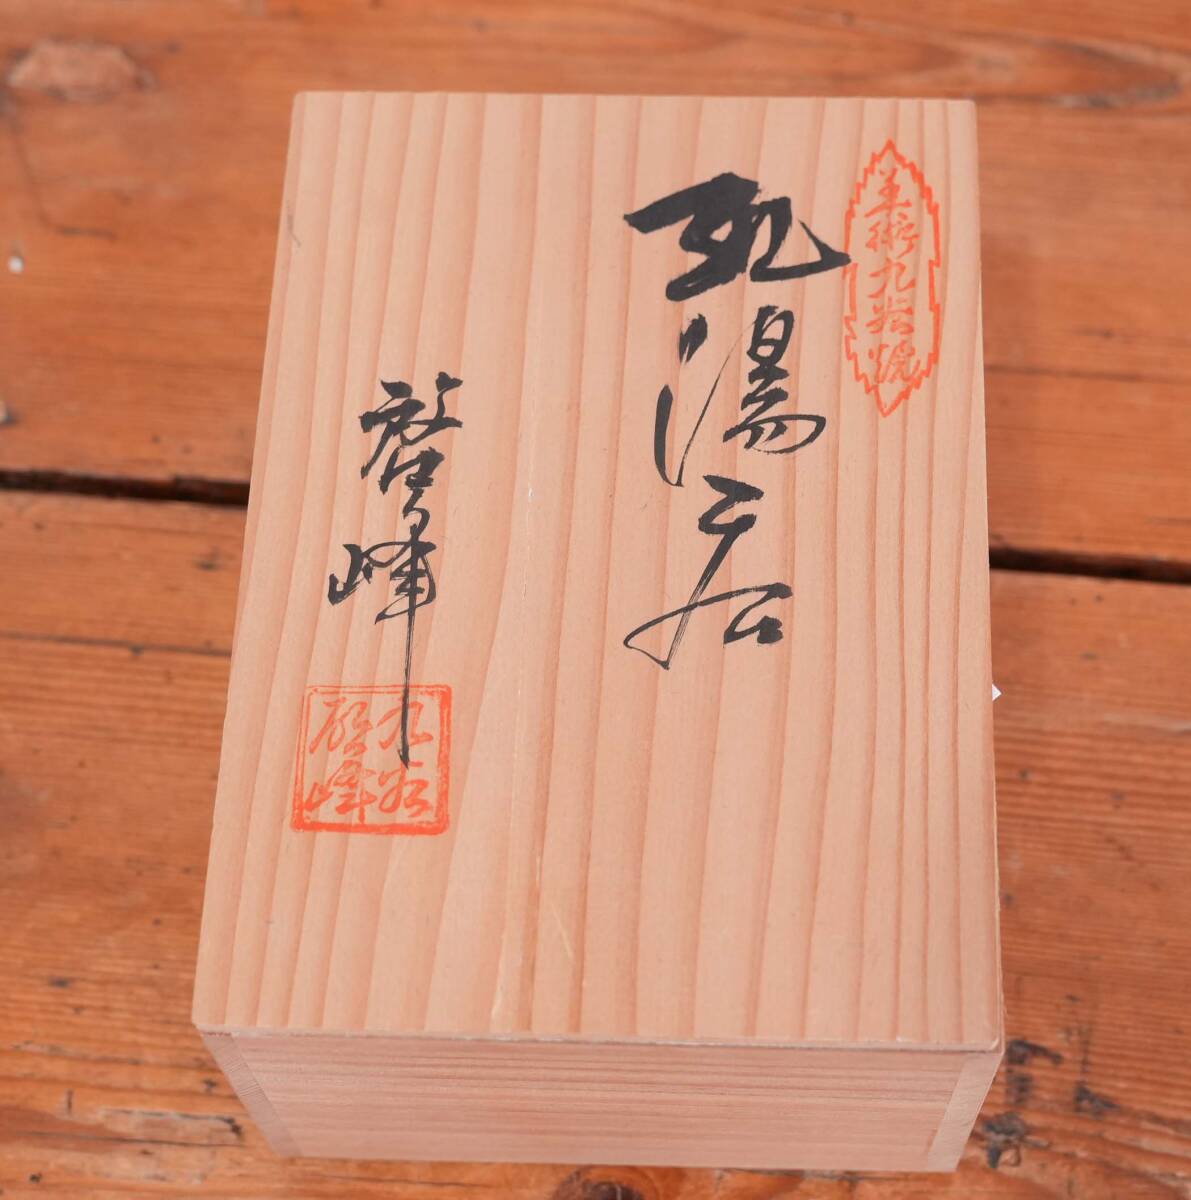 美術九谷焼
組湯呑
啓峰
九谷
啓峰